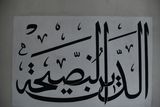 الدين النصيحة